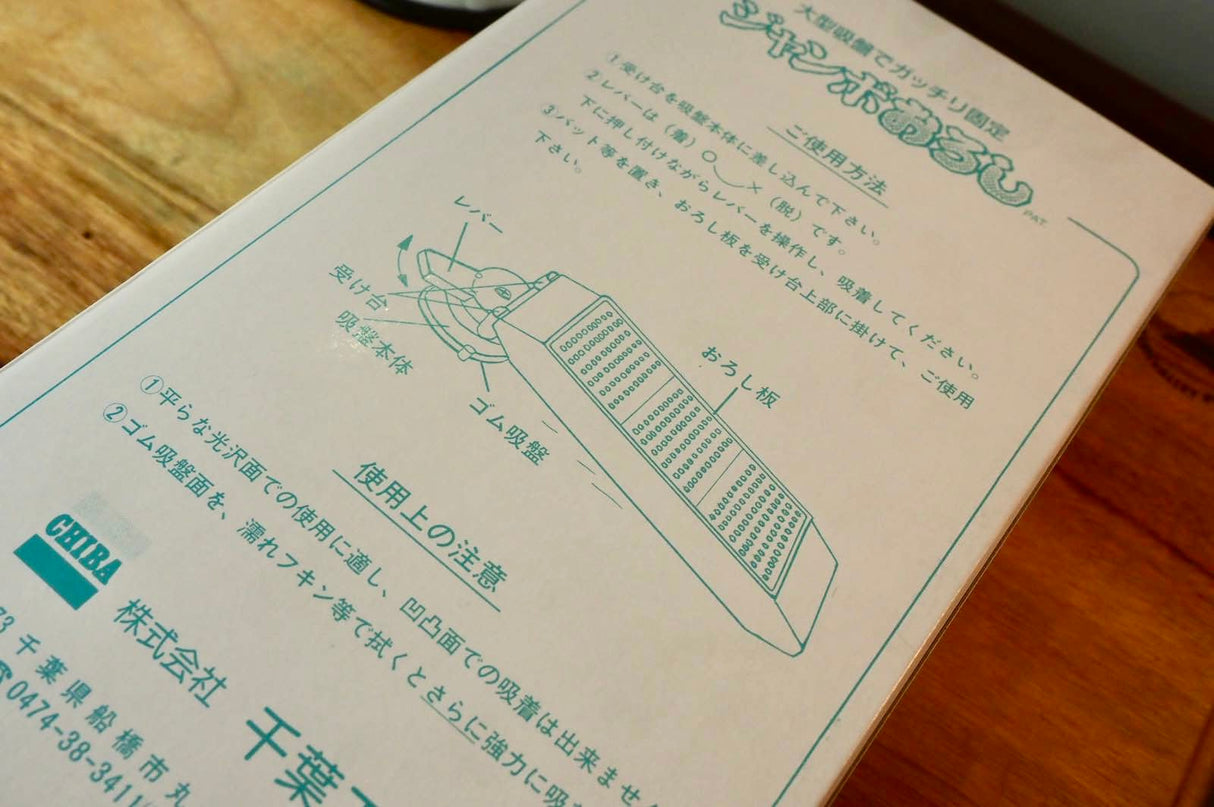 大型吸盤でガッチリ固定
ジャンボおろし
PAT.
ご使用方法
①受け台を吸盤本体に差し込んで下さい。
②レバーは（着）○ ×（脱）です。
下に押し付けながらレバーを操作し、吸着してください。
③バット等を置き、おろし板を受け台上部に掛けて、ご使用
下さい。
レバー
受け台
吸盤本体
ゴム吸盤
おろし板
使用上の注意
①平らな光沢面での使用に適し、凹凸面での吸着は出来ません
②ゴム吸盤面を、濡れフキン等で拭くとさらに強力に吸
CHIBA
株式会社 千葉
73 千葉県船橋市丸
☎0474-38-3411